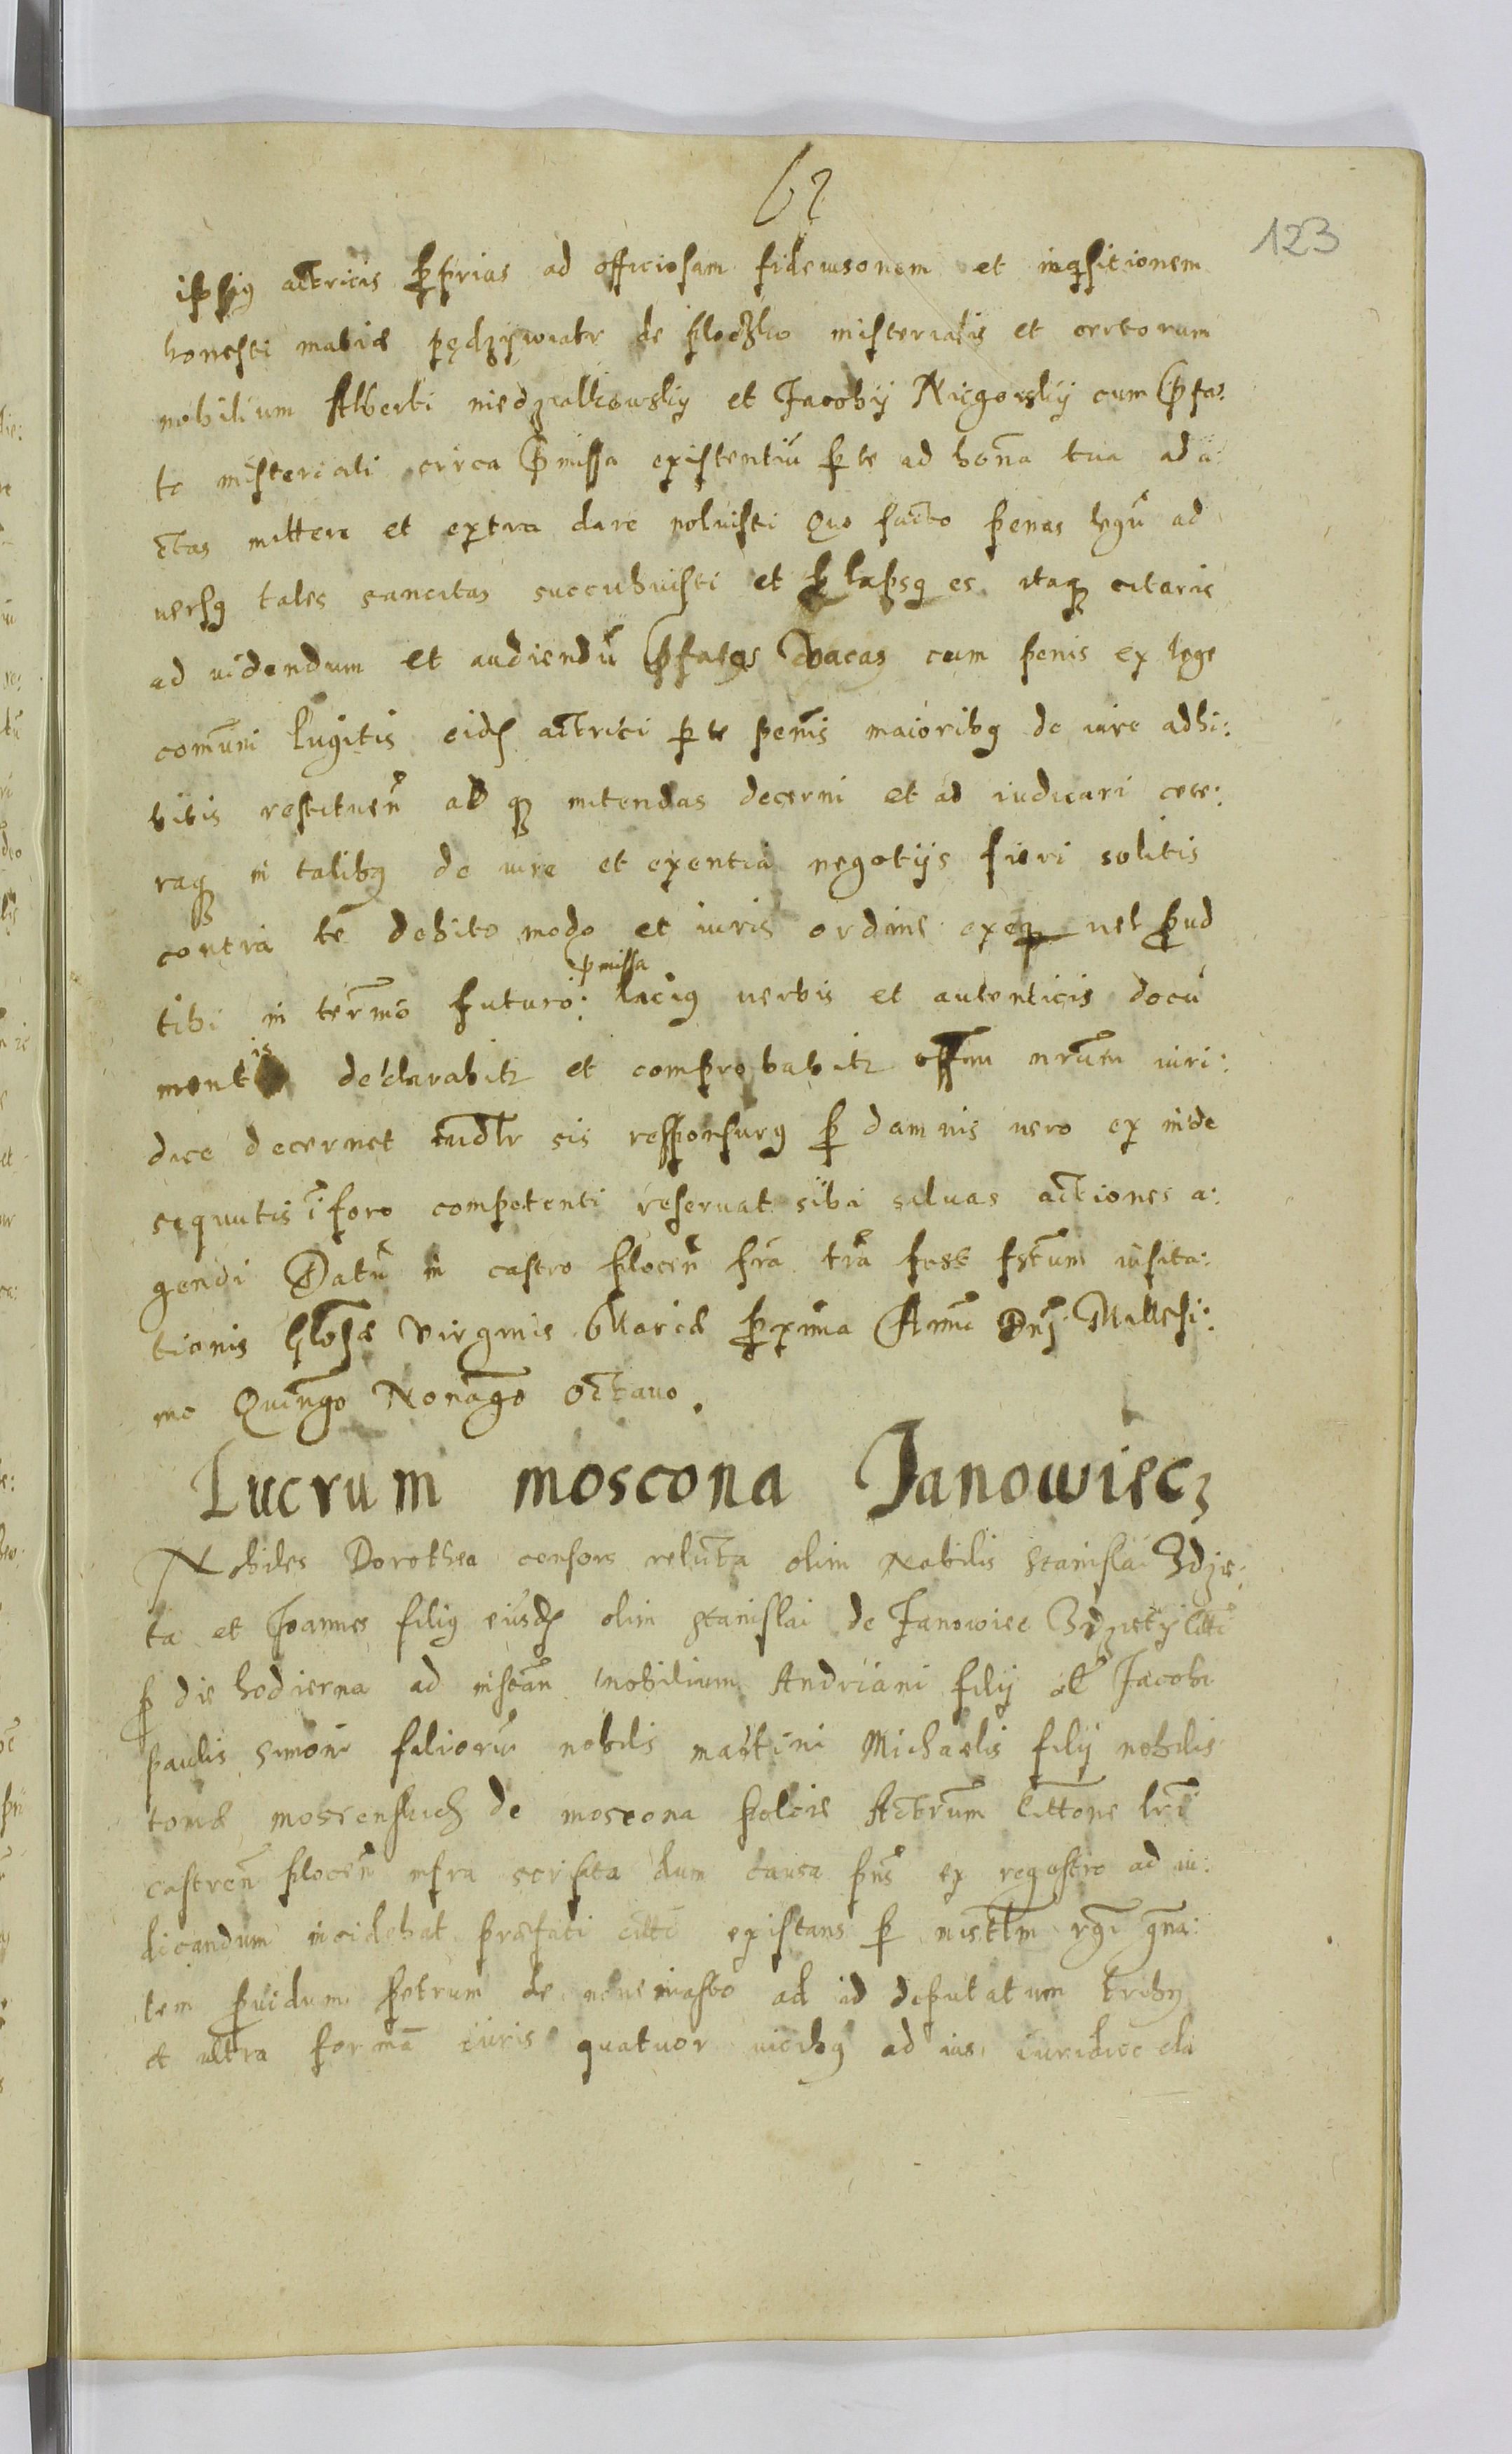 62
123
ipsiꝰ actricis ꝓprias ad officiosam fideiusonem et inqsitionem
honesti mathiæ pędzywiatr de ploczko misterialis et certorum
nobilium Alberti niedzialkowskÿ et Jacobÿ Nicgorskÿ cum p̄fa:
to misteriali circa p̄missa existentiū ꝑ te ad bona tua ad a:
ctas mittere et extra dare noluisti Quo facto penas legū ad
uersꝰ tales sancitas succubuisti et ꝓlapsꝰ es itaqꝫ citaris
ad videndum et audiendū p̄fatas vacas cum penis ex lege
comuni lugitis eidē actrici ꝑ te penis maioribꝰ de iure adhi:
bitis restituen̄ ab qꝫ mitendas decerni et ad iudicari cete:
raqꝫ in talibꝰ de iure et exentia negotijs fieri solitis
contra te debito modo et iuris ordine exeqꝫ uel ꝓud
tibi in termo futuro: p̄missa laciꝰ verbis et autenticis docu
mentis declarabitr et comprobabitr offm nrum iuri:
dice decernet iudlr sis responsurꝰ ꝓ damnis uero ex inde
sequutis ī foro competenti reseruat sibi saluas actiones a:
gendi Datū in castro plocen̄ fr̄a tr̄a post fstum visita:
tionis glosæ Virginis Mariæ ꝓxima Anno Dnj Millesi:
mo Quingo Nonago Octauo.
Lucrum moscona Janowiecz
Nobiles Dorothea consors relicta olim Nobilis Stanislai Zdzie:
ta et Joannes filiꝰ eiusdē olim Stanislai de Janowiec Zdzietÿ citti
ꝓ die hodierna ad instan̄ nobilium Andriani filij ol Jacobi
paulis simonis filiorū nobilis martini Michaelis filij nobilis
tomæ moscenskich de moscona polcie Actrum cittone lri
castren̄ plocen̄ infra scripta dum causa pns ex regestro ad iu:
dicandum incidebat præfati citti existans ꝑ mistlm rgi gna:
lem ꝓuidum petrum de nouemiasto ad id deputatum tribꝰ
et ultra forma iuris quatuor vicibꝰ ad ius iuridice cla